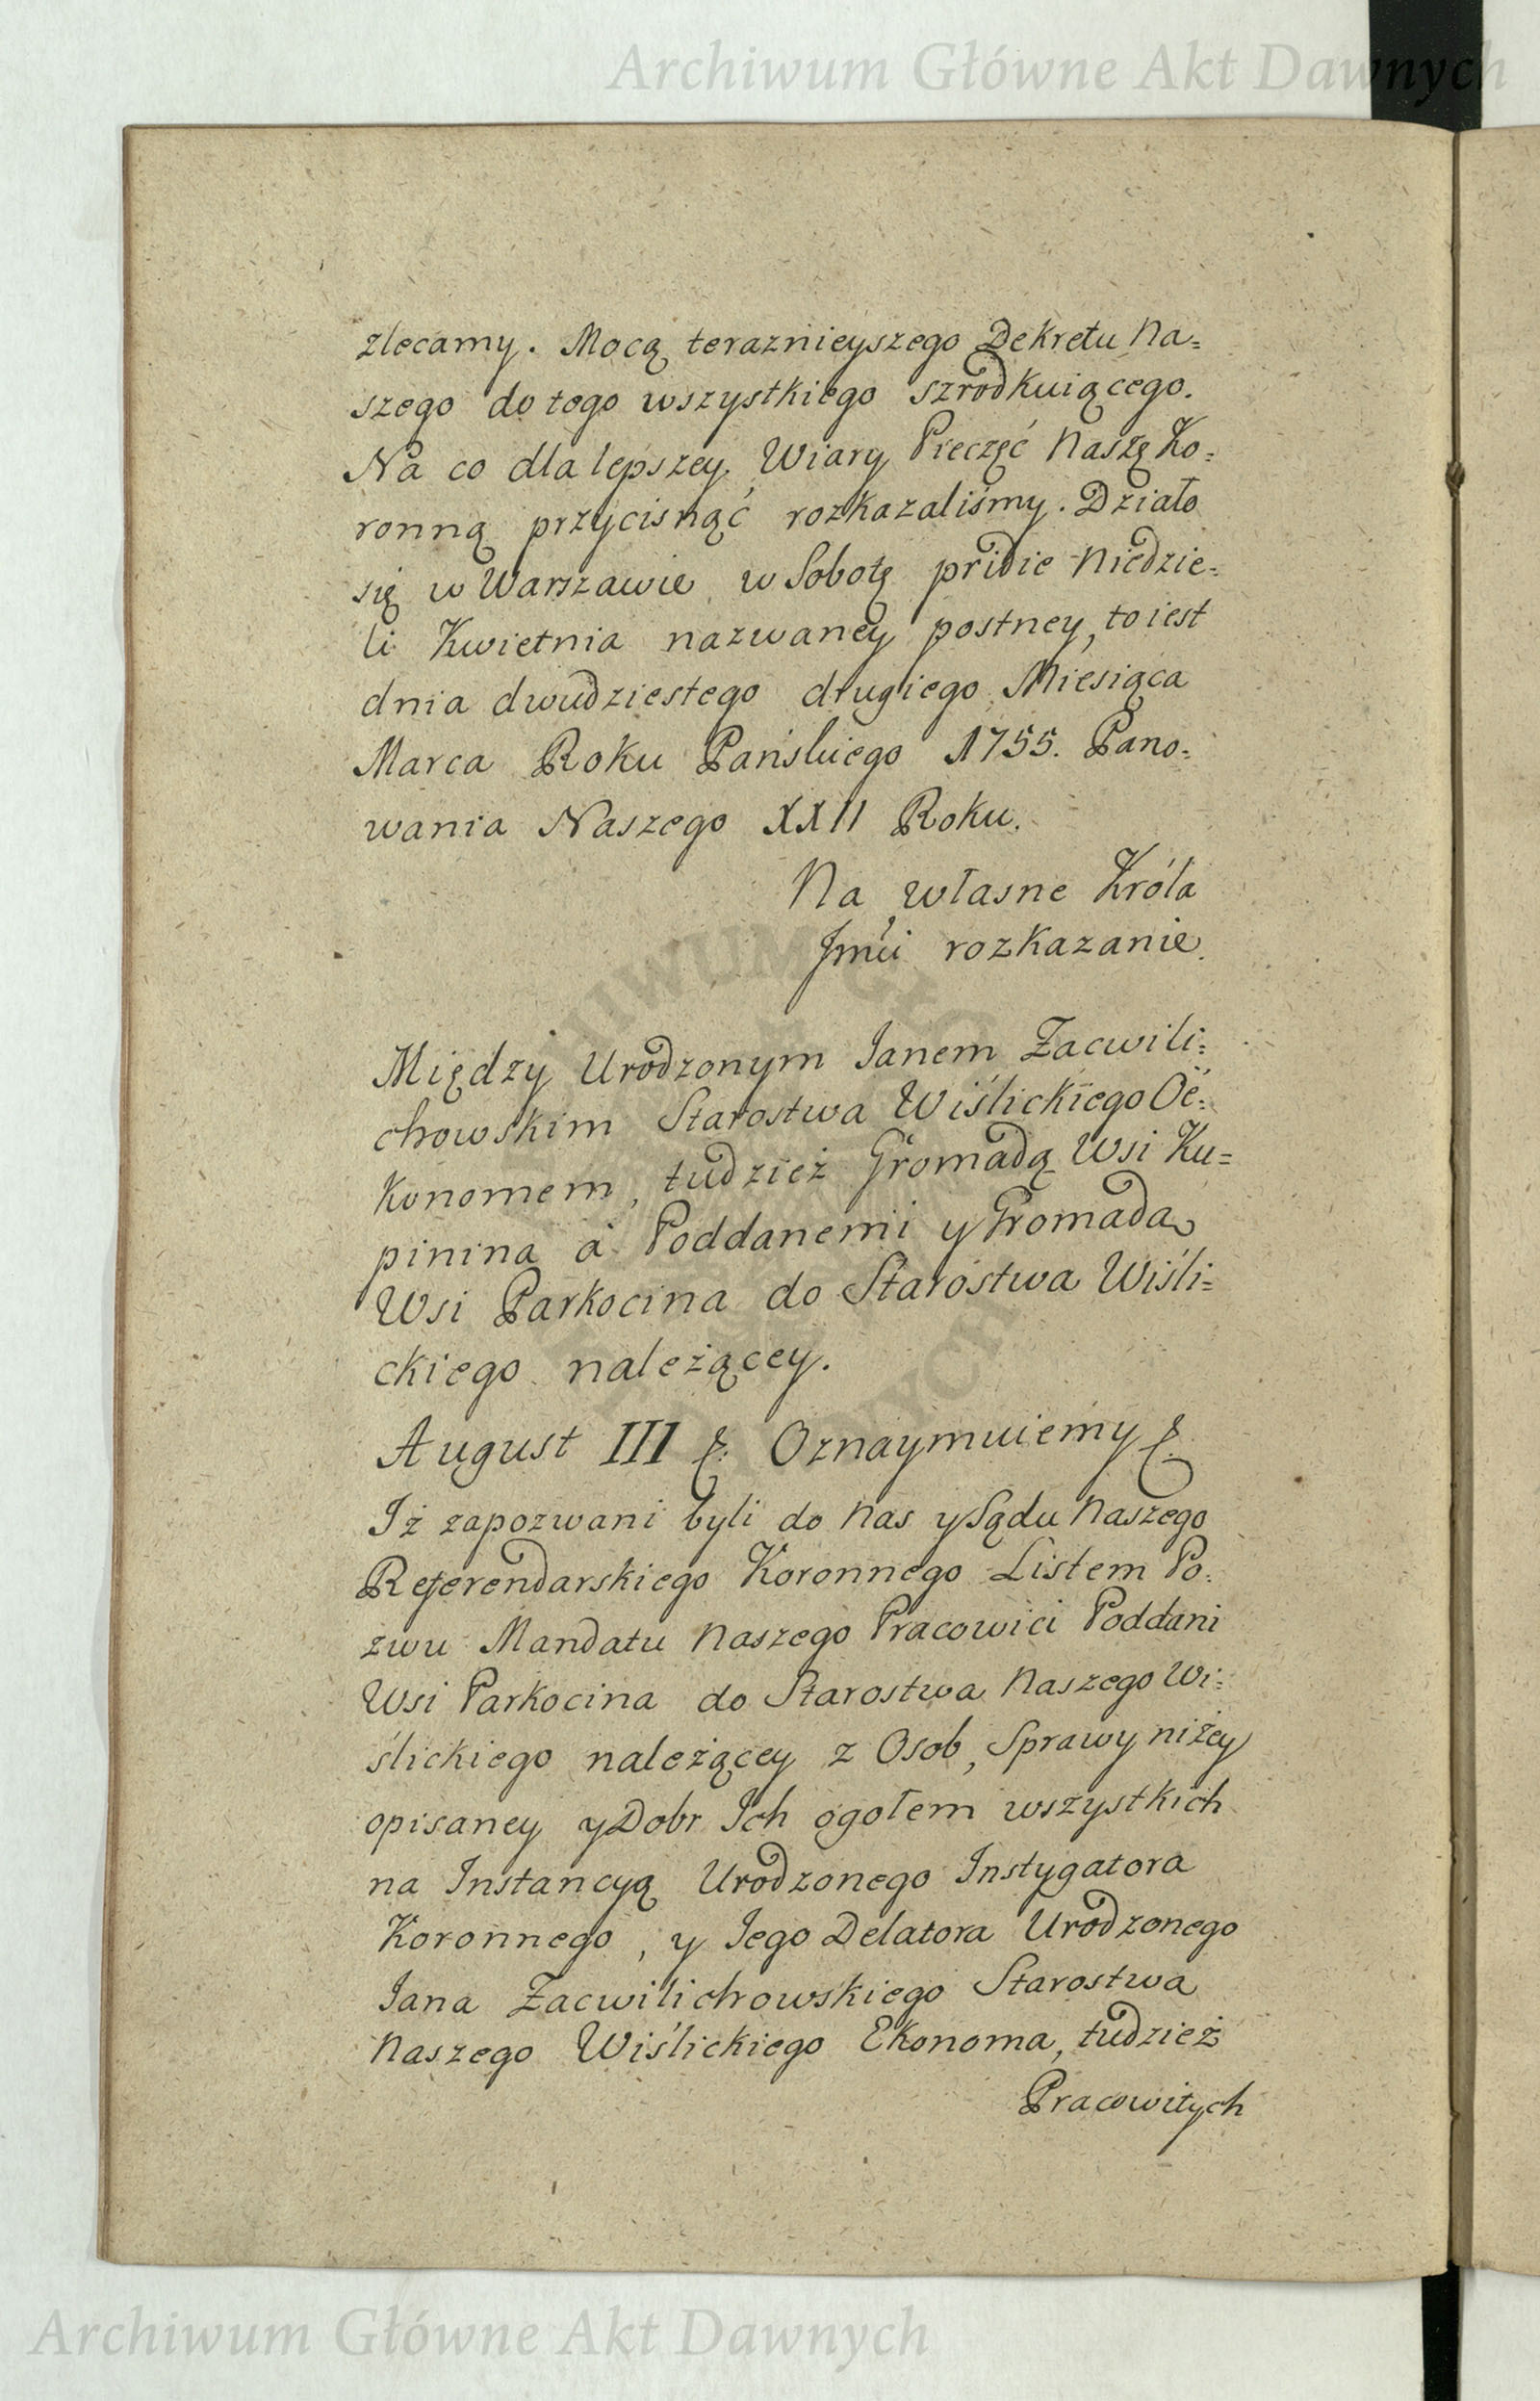 Archiwum Główne Akt Dawnych
zlecamy. Mocą teraznieyszego Dekretu Na=
szego do tego wszystkiego szrodkuiącego.
Na co dla lepszey Wiary Pieczęć Naszą Ko=
ronną przycisnąć rozkazaliśmy. Działo
się w Warszawie w Sobotę pridie Niedzie=
li Kwietnia nazwaney postney, to iest
dnia dwudziestego drugiego Miesiąca
Marca Roku Pańskiego 1755. Pano=
wania Naszego XXII Roku.
Na własne Króla
Jmći rozkazanie.
Między Urodzonym Janem Zacwili=
chowskim Starostwa Wiślickiego Oe=
konomem, tudzież Gromadą Wsi Ku=
pinina a Poddanemi y Gromadą
Wsi Parkocina do Starostwa Wiśli=
ckiego należącey.
August III &. Oznaymuiemy &.
Iż zapozwani byli do Nas y Sądu Naszego
Referendarskiego Koronnego Listem Po=
zwu Mandatu Naszego Pracowici Poddani
Wsi Parkocina do Starostwa Naszego Wi=
ślickiego należącey z Osob, Sprawy niżey
opisaney y Dobr Ich ogołem wszystkich
na Instancyą Urodzonego Instygatora
Koronnego, y Jego Delatora Urodzonego
Jana Zacwilichowskiego Starostwa
Naszego Wiślickiego Ekonoma, tudzież
Pracowitych
Archiwum Główne Akt Dawnych